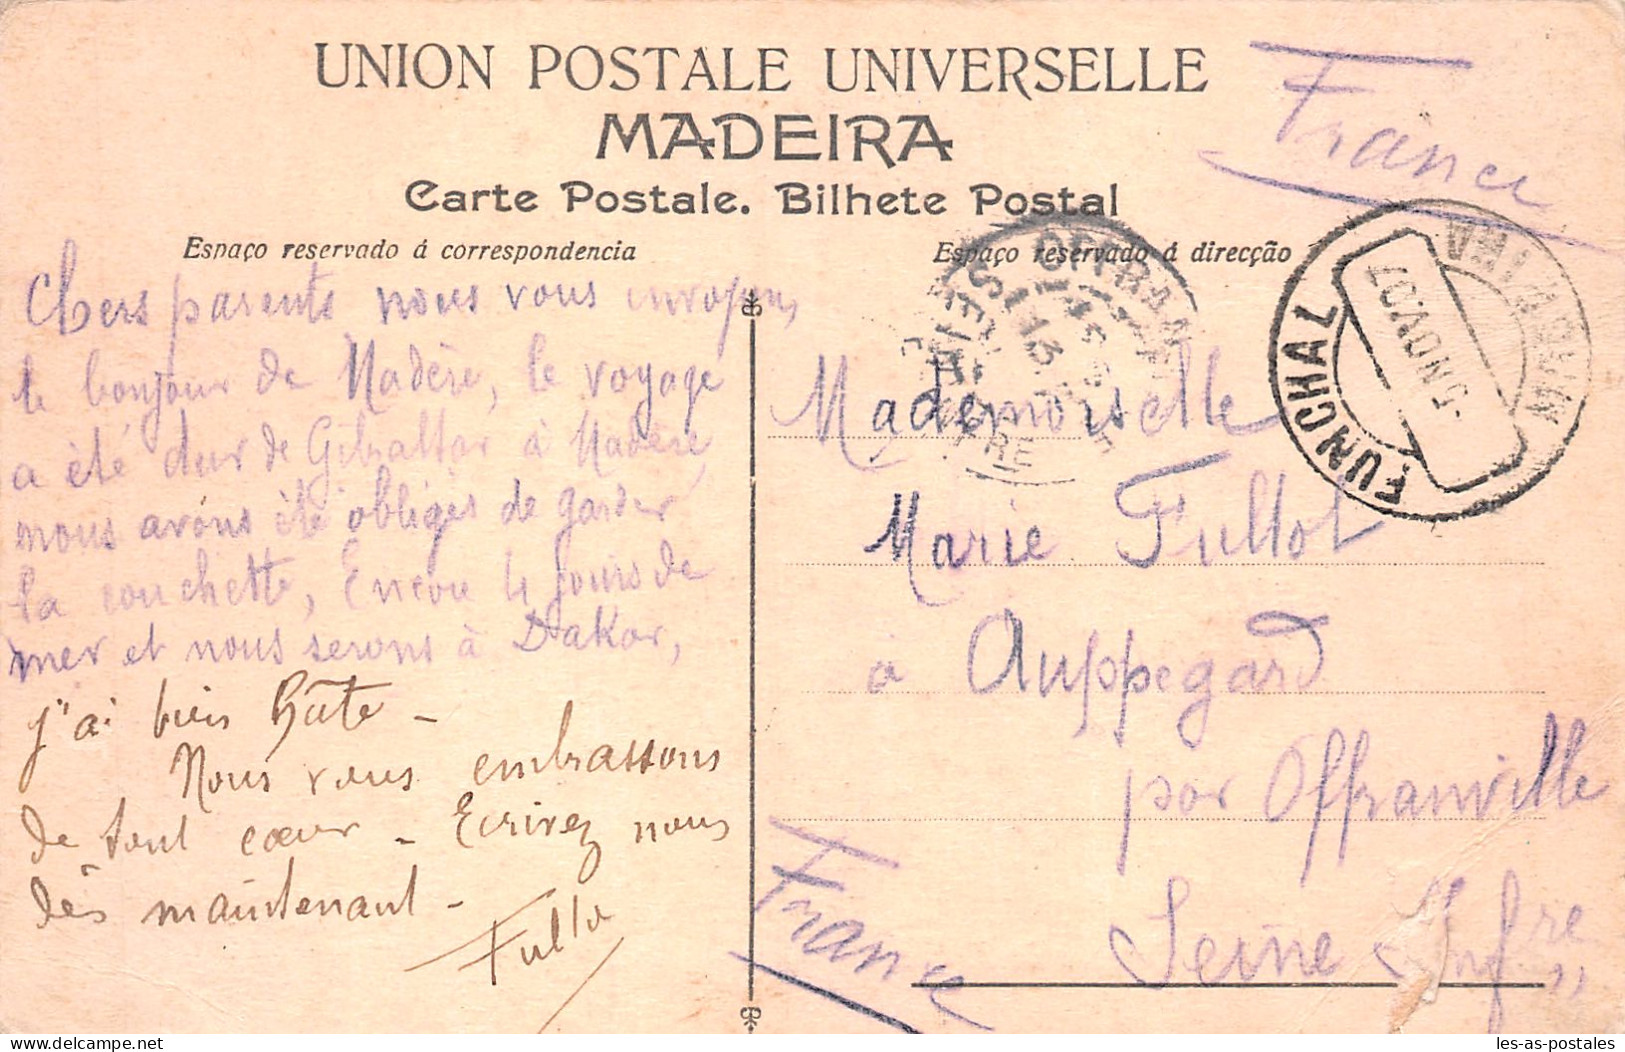 UNION POSTALE UNIVERSELLE
MADEIRA
Carte Postale. Bilhete Postal
Espaço reservado á correspondencia
Espaço reservado á direcção
France
Chers parents nous vous envoyons
le bonjour de Madère, le voyage
a été dur de Gibraltar à Madère,
nous avons été obligés de garder
la couchette, Encore 4 jours de
mer et nous serons à Dakar,
j'ai bien hâte -
Nous vous embrassons
de tout cœur - Ecrivez nous
dès maintenant -
FUNCHAL
5 NOV. 07
OFFRANVILLE
SEINE INFRE
Mademoiselle
Marie Fullot
à Auppegard
par Offranville
Seine Infre
France
delcampe.net
les-as-postales